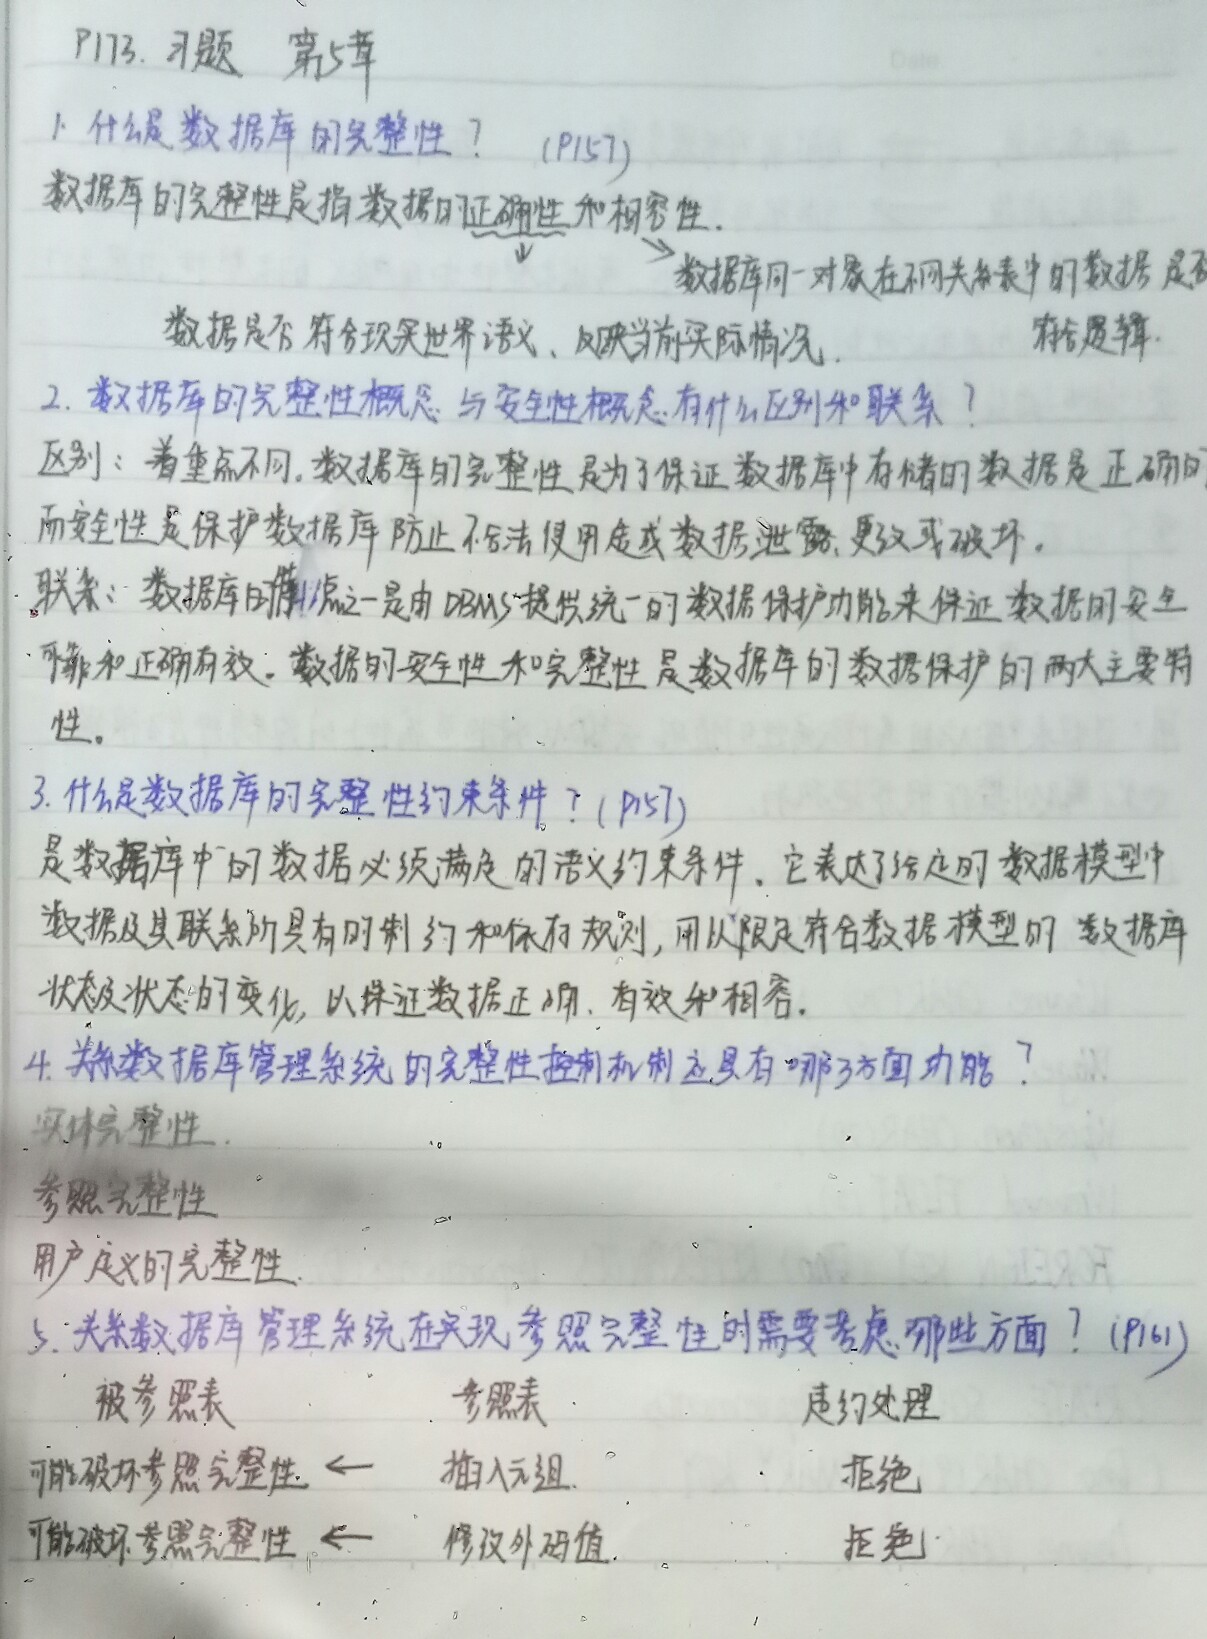 P173. 习题 第5章
1. 什么是数据库的完整性？ (P157)
数据库的完整性是指数据的正确性和相容性.
数据库同一对象在不同关系表中的数据是否
数据是否符合现实世界语义、反映当前实际情况. 符合逻辑.
2. 数据库的完整性概念与安全性概念有什么区别和联系？
区别：着重点不同。数据库的完整性是为了保证数据库中存储的数据是正确的
而安全性是保护数据库防止不合法使用或数据泄露、更改或破坏。
联系：数据库的特点之一是由DBMS提供统一的数据保护功能来保证数据的安全
可靠和正确有效。数据的安全性和完整性是数据库的数据保护的两大主要特
性。
3. 什么是数据库的完整性约束条件？(P157)
是数据库中的数据必须满足的语义约束条件、它表达了给定的数据模型中
数据及其联系所具有的制约和依存规则，用以限定符合数据模型的数据库
状态及状态的变化，以保证数据正确、有效和相容。
4. 关系数据库管理系统的完整性控制机制应具有哪3方面功能？
实体完整性.
参照完整性
用户定义的完整性.
5. 关系数据库管理系统在实现参照完整性时需要考虑哪些方面？(P161)
被参照表 参照表 违约处理
可能破坏参照完整性. ← 插入元组. 拒绝
可能破坏参照完整性 ← 修改外码值. 拒绝